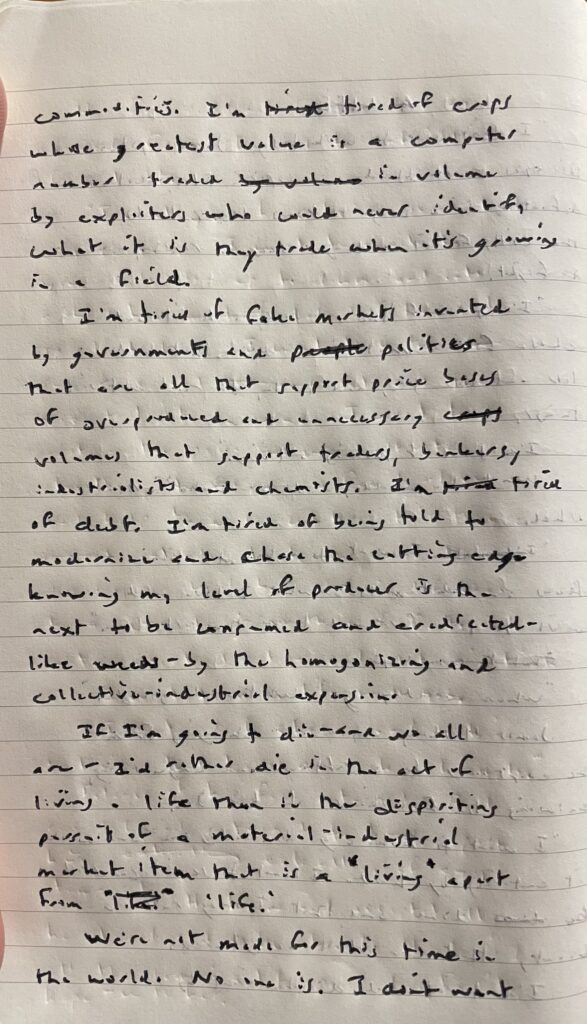 commodities. I'm tired tired of crops
whose greatest value is a computer
number traded by volume in volume
by exploiters who could never identify
what it is they trade when it's growing
in a field.
I'm tired of fake markets invented
by governments and people polities
that are all that support price bases
of overproduced and unnecessary crops
volumes that support traders, bankers,
industrialists and chemists. I'm tired tired
of debt. I'm tired of being told to
modernize and chase the cutting edge
knowing my level of producer is the
next to be consumed and eradicated-
like weeds-by the homogonizing and
collective-industrial expansion.
If I'm going to die-and we all
are - I'd rather die in the act of
living a life than in the dispiriting
pursuit of a material-industrial
market item that is a "living" apart
from 'life.'
We're not made for this time in
the world. No one is. I don't want